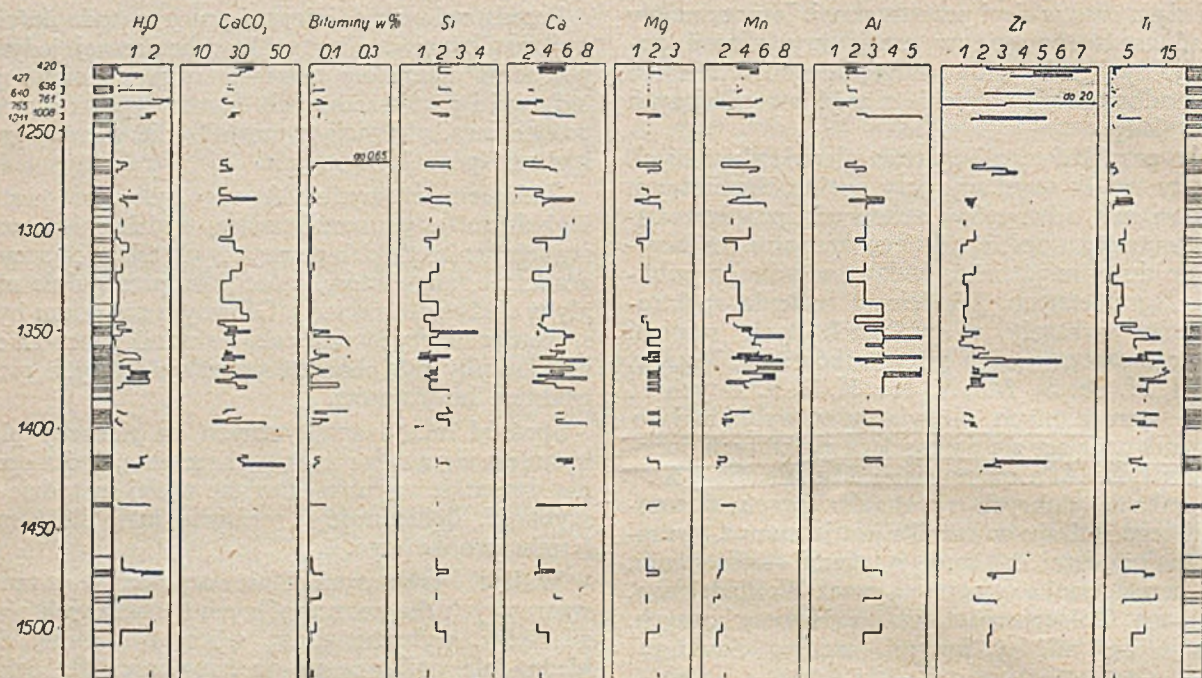 H₂O CaCO₃ Bituminy w% Si Ca Mg Mn Al Zr Ti
1 2 10 30 50 0.1 0.3 1 2 3 4 2 4 6 8 1 2 3 2 4 6 8 1 2 3 4 5 1 2 3 4 5 6 7 5 15
420
427
636
640
761
765
1008
1011
do 20
1250
do 0.65
1300
1350
1400
1450
1500